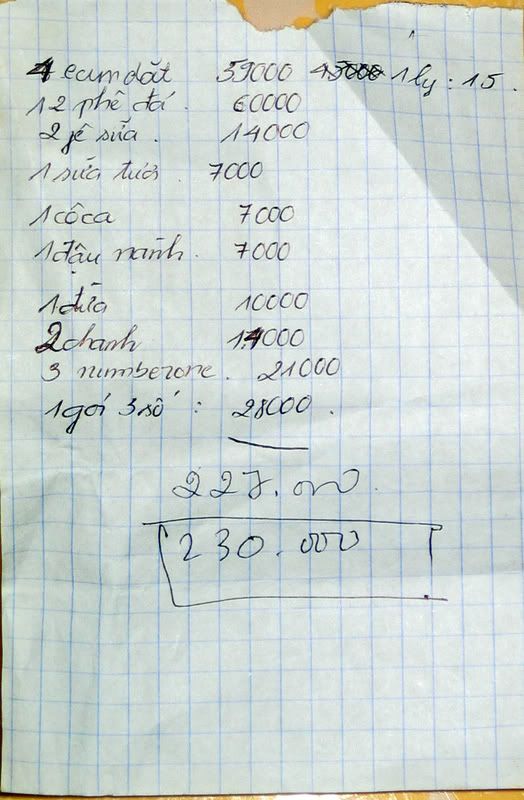 4 ecumdắt 59000 45000 1 ly : 15.
12 phê đá. 60000
2 fê sữa. 14000
1 sữa tươi. 7000
1 côca 7000
1 đậu nành. 7000
1 dừa 10000
2 chanh 14000
3 numberone. 21000
1 gói 3 số : 28000.
227.000.
230.000